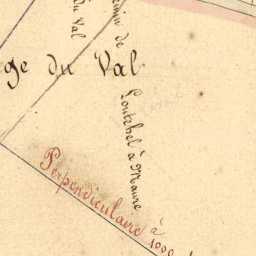 du Val
chemin de
ge du Val
Loutehel à Maure
Perpendiculaire à
1000